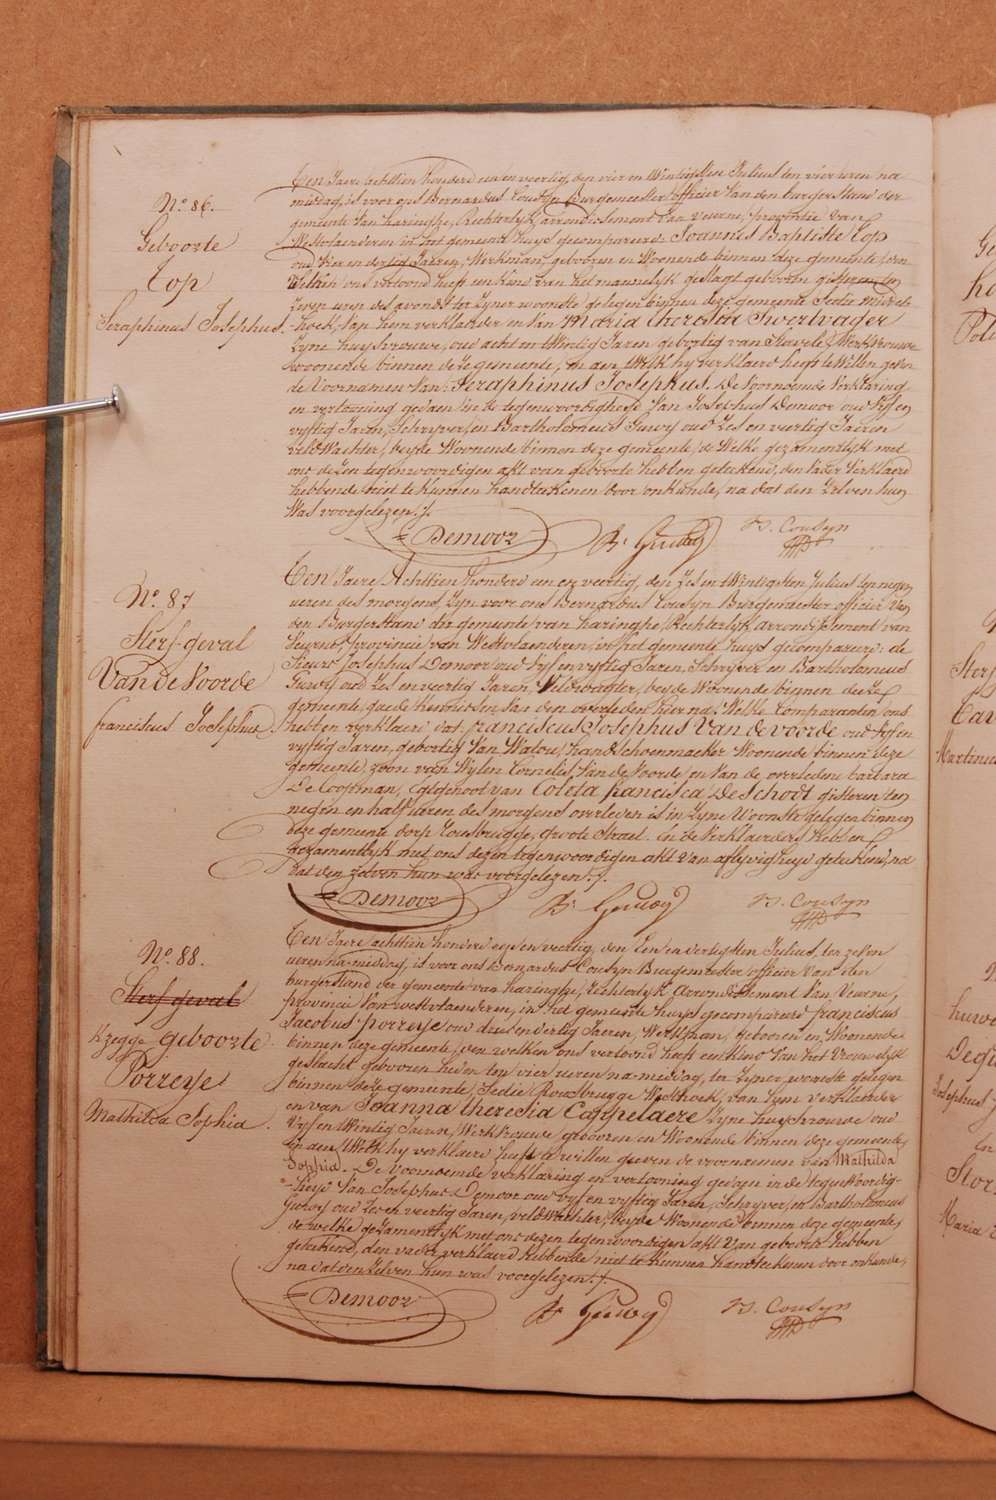 N.º 86.
Geboorte
Top
Seraphinus Josephus.
Ten Jaere achttien honderd een en veertig, den vier en twintigsten Julius ten vier uren na
middag, is voor ons Bernardus Cousyn Burgemeester officier van den burgerstand der
gemeente van haringhe, Rechterlyk arrondissement van veurne, provintie van
Westvlaenderen in het gemeente huys gecompareerd Joannes Baptiste Top
oud vier en dertig Jaeren, Werkman, geboren en Woonende binnen deze gemeente, den
Welken ons vertoond heeft een kind van het mannelyk geslagt geboren gisteren ten
zeven uren des avonds ter zyner woonste gelegen binnen deze gemeente Sectie
hoek, van hem verklaerder en van Maria theresia Swertvager
zyne huysvrouwe, oud acht en twintig Jaren geboortig van Stavele, Werkvrouwe
woonende binnen deze gemeente, en aen Welk hy verklaerd heeft te Willen geven
de Voornamen van Seraphinus Josephus. De Voornoemde Verklaring
en vertooning gedaen in de tegenwoordigheyd van Josephus Demoor oud vyf en
vyftig Jaren, Schryver, en Bartholomeus Guwy oud zes en veertig Jaeren
veldWachter, beyde Woonende binnen deze gemeente, de Welke gezamentlyk met
ons dezen tegenwoordigen akt van geboorte hebben geteekend, den vader verklaerd
hebbende niet te kunnen handteekenen door onkunde, na dat den zelven hun
Was voorgelezen./.
Demoor B. Guwy B. Cousyn
N.º 87
Sterf-geval
Van de Voorde
franciscus Josephus.
Ten Jaere Achttien honderd een en veertig, den zes en twintigsten Julius ten negen
ueren des morgens, zyn voor ons Bernardus Cousyn Burgemeester officier Van
den Burgerstand der gemeente van haringhe, Rechterlyk arrondissement van
Veurne, provincie van Westvlaenderen, in het gemeente huys gecompareerd: de
Sieurs Josephus Demoor oud vyf en vyftig Jaren, Schryver en Bartholomeus
Guwy oud zes en veertig Jaren, Veldwagter, beyde Woonende binnen deeze
gemeente, goede kennissen van den overleden hier na; Welke Comparanten ons
hebben verklaerd dat franciscus Josephus Van de voorde oud vyf en
vyftig Jaren, geboortig van Watou, handschoenmaeker Woonende binnen deze
gemeente, zoon van Wylen Cornelis Van de Voorde en van de overledene barbara
De Cooptman, Egtgenoot van Coleta francisca De Schodt gisteren ten
negen en half uren des morgens overleden is in zyne Woonste gelegen binnen
deze gemeente dorp Rousbrugge, groote Straet. En de Verklaerders hebben
gezamentlyk met ons dezen tegenwoordigen akt van aflyvigheyd geteekend, na
dat den zelven hun was voorgelezen./.
Demoor B. Guwy B. Cousyn
N.º 88.
Sterf-geval
Ikzegge geboorte
Porreye
Mathilda Sophia.
Ten Jaere achttien honderd een en veertig, den Een en dertigsten Julius, ten zes
ueren na-middag, is voor ons Bernardus Cousyn Burgemeester officier van den
burgerstand der gemeente van haringhe, Rechterlyk Arrondissement van Veurne,
provincie van westvlaenderen, in het gemeente huys gecompareerd franciscus
Jacobus Porreye oud drie en dertig Jaeren, Werkman, geboren en Woonende
binnen deze gemeente, den welken ons vertoond heeft een kind van het Vrouwelyk
geslacht gebooren heden ten vier ueren na-middag, ter zyner wonste gelegen
binnen deze gemeente, Sectie Rousbrugge Westhoek, van hem Verklaerder
en van Joanna theresia Cappelaere zyne huysvrouwe oud
vyf en twintig Jaeren, Werkvrouwe gebooren en Woonende binnen deze gemeente,
en aen Welk hy verklaerd heeft te willen geeven de voornaemen van Mathilda
Sophia. De Voornoemde verklaering en vertooning gedaen in de tegenwoordig-
heyd van Josephus Demoor oud vyf en vyftig Jaren, Schryver, en Bartholomeus
Guwy oud zeven veertig Jaren, veldWachter, beyde Woonende binnen deze gemeente,
de welke gezamentlyk met ons dezen tegenwoordigen akt van geboorte hebben
geteekend, den vader verklaerd hebbende niet te kunnen handteekenen door onkunde,
na dat den zelven hun was voorgelezen./.
Demoor B. Guwy B. Cousyn